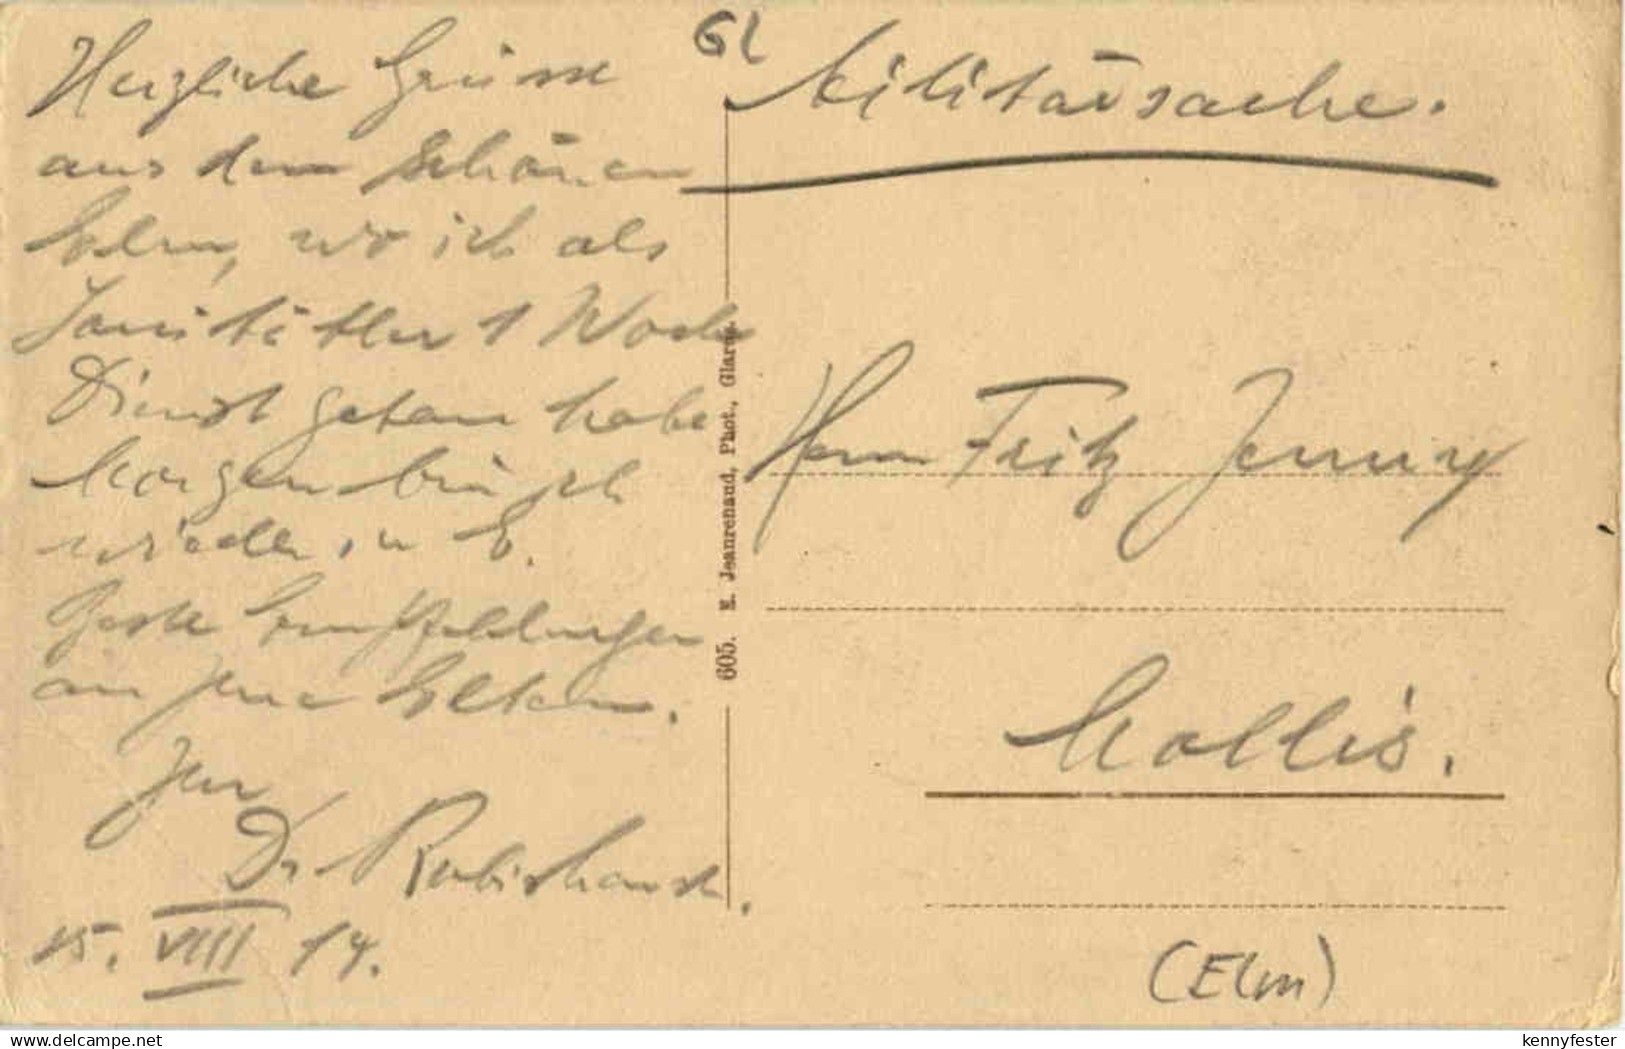 Herzliche Grüsse
aus dem schönen
Elm, wo ich als
Sanitätler 1 Woche
Dienst getan habe
Morgen bin ich
wieder in E.
Beste Empfehlungen
an Ihre Eltern.
Ihr
Dr
15. VIII 14.
Gl
Militärsache.
605. E. Jeanrenaud, Phot., Glarus.
Herrn Fritz Jenny
Mollis.
(Elm)
www.delcampe.net
kennyfester